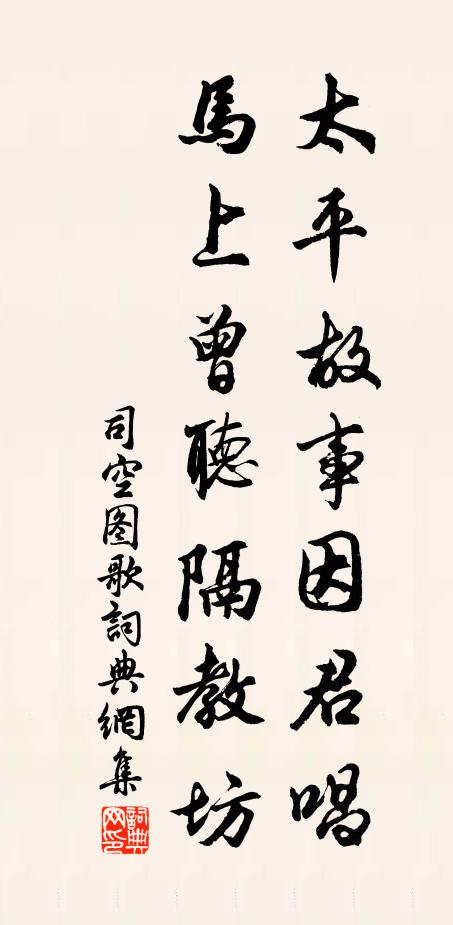 太平故事因君唱
馬上曾聽隔教坊
司空图歌詞典網集
詞典
网印